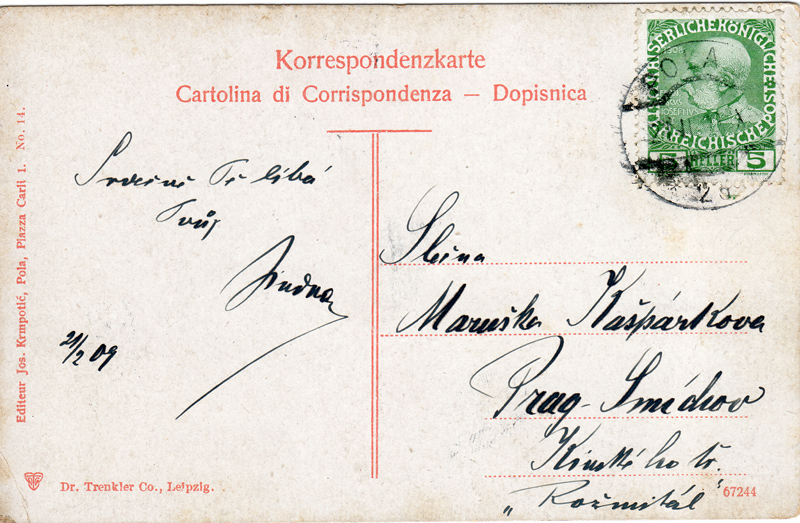 Korrespondenzkarte
Cartolina di Corrispondenza — Dopisnica
KAISERLICHE KÖNIGLICHE
ÖSTERREICHISCHE POST
1908
5 HELLER 5
POLA
Srdečně Tě líbá
Tvůj
Jindra
21/2 09
Slečna
Maruška Kašpárkova
Prag-Smíchov
Kinského tř.
„Rožmitál“
Editeur Jos. Krmpotić, Pola, Piazza Carli 1. No. 14.
Dr. Trenkler Co., Leipzig.
67244